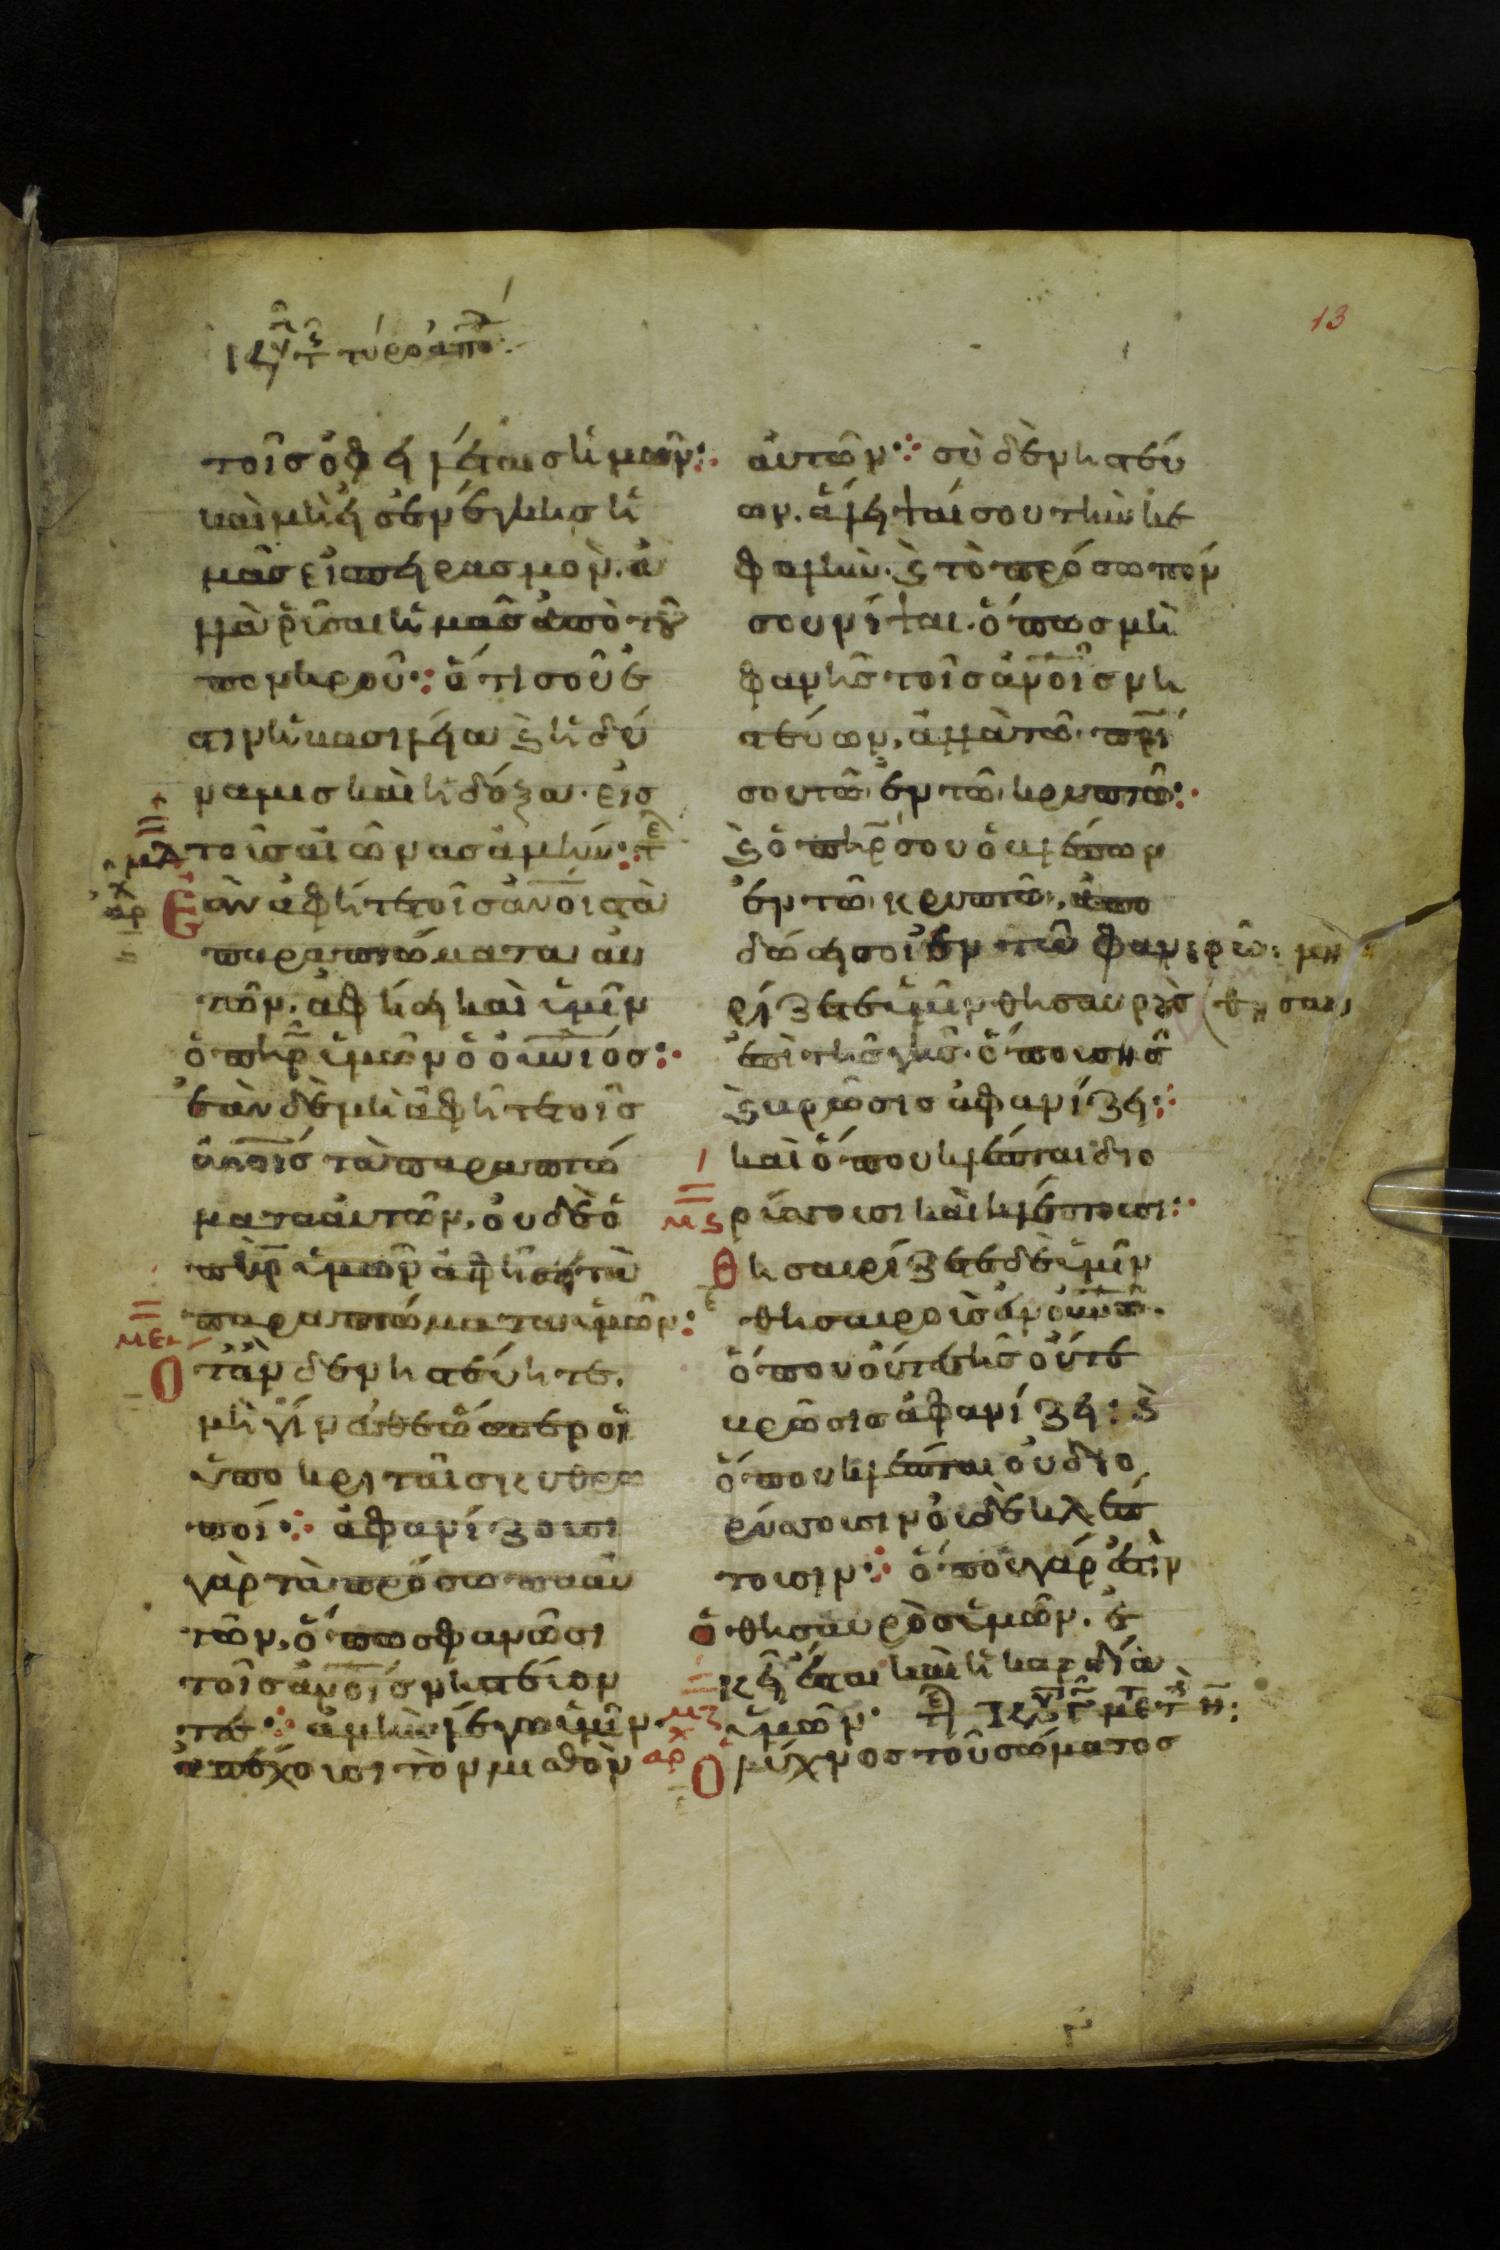 13
τοῖς ὀφηλέταις ἡμῶν:
καὶ μὴ ἠσενέγκης ἡ
μᾶς εἰς πηρασμὸν. ἀ
λλὰ ῥῦσαι ἡμᾶς ἀπὸ τοῦ
πονηροῦ: ὅτι σοῦ ἐ
στιν ἡ βασιλήα ϗ ἡ δύ
ναμις καὶ ἡ δόξα. εἰς
τοὺς αἰῶνας ἀμήν:
Ἐὰν ἀφῆτε τοῖς ἀνοις τὰ
παραπτώματα αὐ
τῶν. ἀφήσῃ καὶ ὑμῖν
ὁ πηρ ὑμῶν ὁ οὐνιός:
ἐὰν δὲ μὴ ἀφῆτε τοῖς
ἀνοις τὰ παραπτώ
ματα αὐτῶν, οὐδὲ ὁ
πηρ ὑμῶν ἀφήσῃ τὰ
παραπτώματα ὑμῶν:
με
Ὅταν δὲ νηστεύητε.
μὴ γίνεσθε ὥσπερ οἱ
ὑποκριταὶ σκυθρω
ποί: ἀφανίζουσι
γὰρ τὰ πρόσωπα αὐ
τῶν, ὅπως φανῶσι
τοῖς ἀνοις νηστεύον
τες: ἀμὴν λέγω ὑμῖν
ἀπέχουσι τὸν μισθὸν
αὐτῶν: σὺ δὲ νηστεύ
ων. ἄληψαί σου τὴν κε
φαλὴν. ϗ τὸ πρόσωπόν
σου νίψαι. ὅπως μὴ
φανῇς τοῖς ἀνοις νη
στεύων, ἀλλὰ τῷ πρί
σου τῷ ἐν τῷ κρυπτῷ:
ϗ ὁ πηρ σου ὁ βλέπων
ἐν τῷ κρυπτῷ, ἀπο
δώσῃ σοι ἐν τῷ φανερῷ: μὴ
θησαυ
ρίζετε ὑμῖν θησαυροὺς
ἐπὶ τῆς γῆς. ὅπου σὴς
ϗ βρῶσις ἀφανίζη:
καὶ ὅπου κλέπται διο
μϛ
ρύττουσι καὶ κλέπτουσι:
Θησαυρίζετε δὲ ὑμῖν
θησαυροὺς ἐν οὐνῶ.
ὅπου οὔτε σὴς οὔτε
βρῶσις ἀφανίζη: ϗ
ὅπου κλέπται οὐ διο
ρύττουσιν οὐδὲ κλέπ
τουσιν: ὅπου γάρ ἐστὶν
ὁ θησαυρὸς ὑμῶν. ἐ
κῆ ἔσται καὶ ἡ καρδία
μζ
ὑμῶν·
αρχ
Ὁ λύχνος τοῦ σώματος